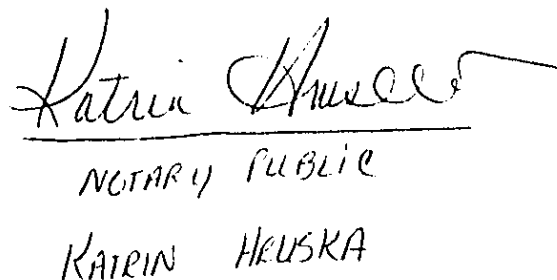 Katrin Hruska
NOTARY PUBLIC
KATRIN HRUSKA